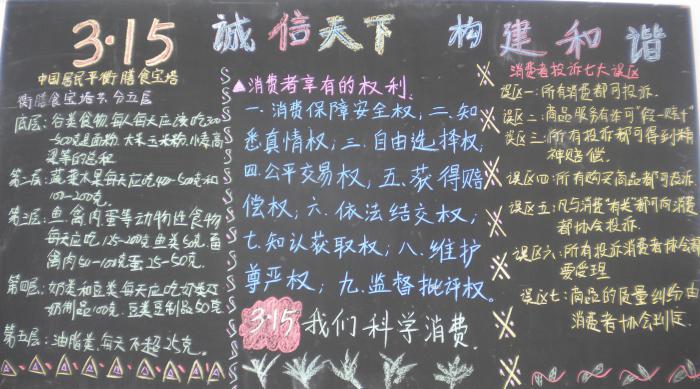 3·15 诚信天下 构建和谐
中国居民平衡膳食宝塔
衡膳食宝塔共分五层
底层:谷类食物,每人每天应该吃300
-500克是面粉、大米、玉米粉、小麦高
粱等的总和
第二层:蔬菜水果每天应吃400-500克和
100-200克.
第三层:鱼禽肉蛋等动物性食物
每天应吃125-200克鱼类50克,畜
禽肉50-100克蛋25-50克.
第四层:奶类和豆类每天应吃奶类及
奶制品100克,豆类豆制品50克
第五层:油脂类,每天不超25克.
▲消费者享有的权利.
一.消费保障安全权;二.知
悉真情权;三.自由选择权;
四.公平交易权;五.获得赔
偿权;六.依法结交权;
七.知认获取权;八.维护
尊严权;九.监督批评权。
3·15 我们科学消费.
消费者投诉七大误区
误区一:所有消费都可投诉.
误区二:商品服务有诈可"假一赔十"
误区三:所有投诉都可得到精
神赔偿.
误区四:所有购买商品都可投诉
误区五:凡与消费"有关"都可向消费
者协会投诉.
误区六:所有投诉消费者协会都
要受理
误区七:商品的质量纠纷由
消费者协会判定.